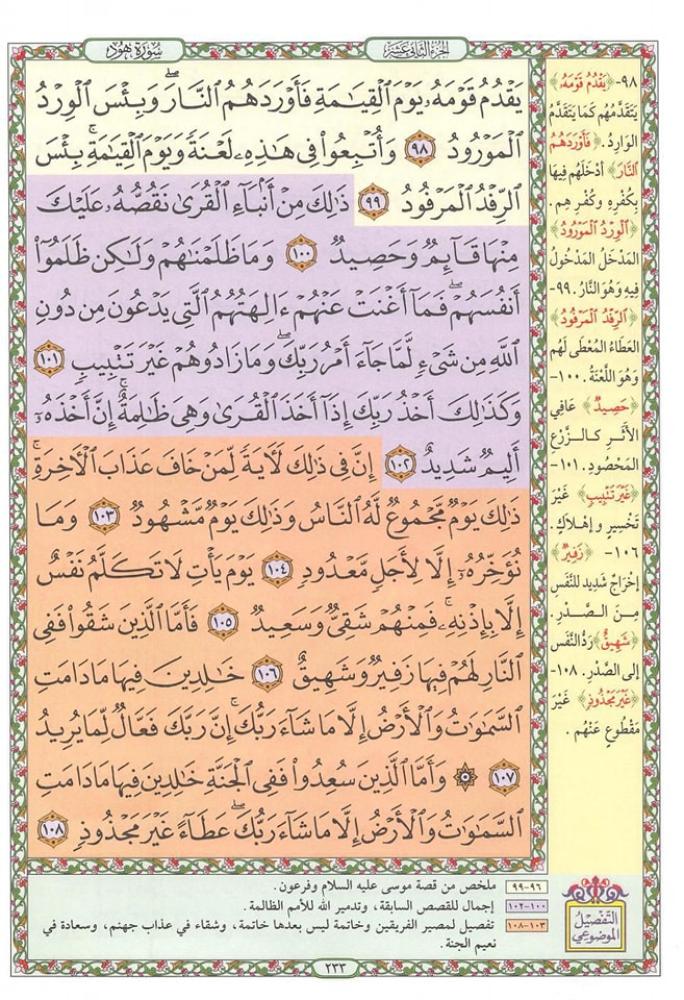 الجزء الثاني عشر
سورة هود
يَقْدُمُ قَوْمَهُۥ يَوْمَ ٱلْقِيَٰمَةِ فَأَوْرَدَهُمُ ٱلنَّارَ ۖ وَبِئْسَ ٱلْوِرْدُ
ٱلْمَوْرُودُ ٩٨ وَأُتْبِعُوا۟ فِى هَٰذِهِۦ لَعْنَةً وَيَوْمَ ٱلْقِيَٰمَةِ ۚ بِئْسَ
ٱلرِّفْدُ ٱلْمَرْفُودُ ٩٩ ذَٰلِكَ مِنْ أَنۢبَآءِ ٱلْقُرَىٰ نَقُصُّهُۥ عَلَيْكَ
مِنْهَا قَآئِمٌ وَحَصِيدٌ ١٠٠ وَمَا ظَلَمْنَٰهُمْ وَلَٰكِن ظَلَمُوٓا۟
أَنفُسَهُمْ ۖ فَمَآ أَغْنَتْ عَنْهُمْ ءَالِهَتُهُمُ ٱلَّتِى يَدْعُونَ مِن دُونِ
ٱللَّهِ مِن شَىْءٍ لَّمَّا جَآءَ أَمْرُ رَبِّكَ ۖ وَمَا زَادُوهُمْ غَيْرَ تَتْبِيبٍ ١٠١
وَكَذَٰلِكَ أَخْذُ رَبِّكَ إِذَآ أَخَذَ ٱلْقُرَىٰ وَهِىَ ظَٰلِمَةٌ ۚ إِنَّ أَخْذَهُۥٓ
أَلِيمٌ شَدِيدٌ ١٠٢ إِنَّ فِى ذَٰلِكَ لَءَايَةً لِّمَنْ خَافَ عَذَابَ ٱلْءَاخِرَةِ ۚ
ذَٰلِكَ يَوْمٌ مَّجْمُوعٌ لَّهُ ٱلنَّاسُ وَذَٰلِكَ يَوْمٌ مَّشْهُودٌ ١٠٣ وَمَا
نُؤَخِّرُهُۥٓ إِلَّا لِأَجَلٍ مَّعْدُودٍ ١٠٤ يَوْمَ يَأْتِ لَا تَكَلَّمُ نَفْسٌ
إِلَّا بِإِذْنِهِۦ ۚ فَمِنْهُمْ شَقِىٌّ وَسَعِيدٌ ١٠٥ فَأَمَّا ٱلَّذِينَ شَقُوا۟ فَفِى
ٱلنَّارِ لَهُمْ فِيهَا زَفِيرٌ وَشَهِيقٌ ١٠٦ خَٰلِدِينَ فِيهَا مَا دَامَتِ
ٱلسَّمَٰوَٰتُ وَٱلْأَرْضُ إِلَّا مَا شَآءَ رَبُّكَ ۚ إِنَّ رَبَّكَ فَعَّالٌ لِّمَا يُرِيدُ
١٠٧ ۞ وَأَمَّا ٱلَّذِينَ سُعِدُوا۟ فَفِى ٱلْجَنَّةِ خَٰلِدِينَ فِيهَا مَا دَامَتِ
ٱلسَّمَٰوَٰتُ وَٱلْأَرْضُ إِلَّا مَا شَآءَ رَبُّكَ ۖ عَطَآءً غَيْرَ مَجْذُوذٍ ١٠٨
٩٨- ﴿يَقْدُمُ قَوْمَهُ﴾
يَتَقَدَّمُهُم كَمَا يَتَقَدَّمُ
الوَارِدُ. ﴿فَأَوْرَدَهُمُ
النَّارَ﴾ أَدْخَلَهُم فِيهَا
بِكُفْرِهِ وَكُفْرِهِم.
﴿الوِرْدُ المَوْرُودُ﴾
المَدْخَلُ المَدْخُولُ
فِيهِ وَهُوَ النَّارُ. ٩٩-
﴿الرِّفْدُ المَرْفُودُ﴾
العَطَاءُ المُعْطَى لَهُم
وَهُوَ اللَّعْنَةُ. ١٠٠-
﴿حَصِيدٌ﴾ عَافِي
الأَثَرِ كَالزَّرْعِ
المَحْصُودِ. ١٠١-
﴿غَيْرَ تَتْبِيبٍ﴾ غَيْرَ
تَخْسِيرٍ وإِهْلَاكٍ.
١٠٦- ﴿زَفِيرٌ﴾
إِخْرَاجٌ شَدِيدٌ للنَّفَسِ
مِنَ الصَّدْرِ.
﴿شَهِيقٌ﴾ رَدُّ النَّفَسِ
إلى الصَّدْرِ. ١٠٨-
﴿غَيْرَ مَجْذُوذٍ﴾ غَيْرَ
مَقْطُوعٍ عَنْهُم.
التفصيل
الموضوعي
٩٦-٩٩ ملخص من قصة موسى عليه السلام وفرعون.
١٠٠-١٠٢ إجمال للقصص السابقة، وتدمير الله للأمم الظالمة.
١٠٣-١٠٨ تفصيل لمصير الفريقين وخاتمة ليس بعدها خاتمة، وشقاء في عذاب جهنم، وسعادة في
نعيم الجنة.
٢٣٣